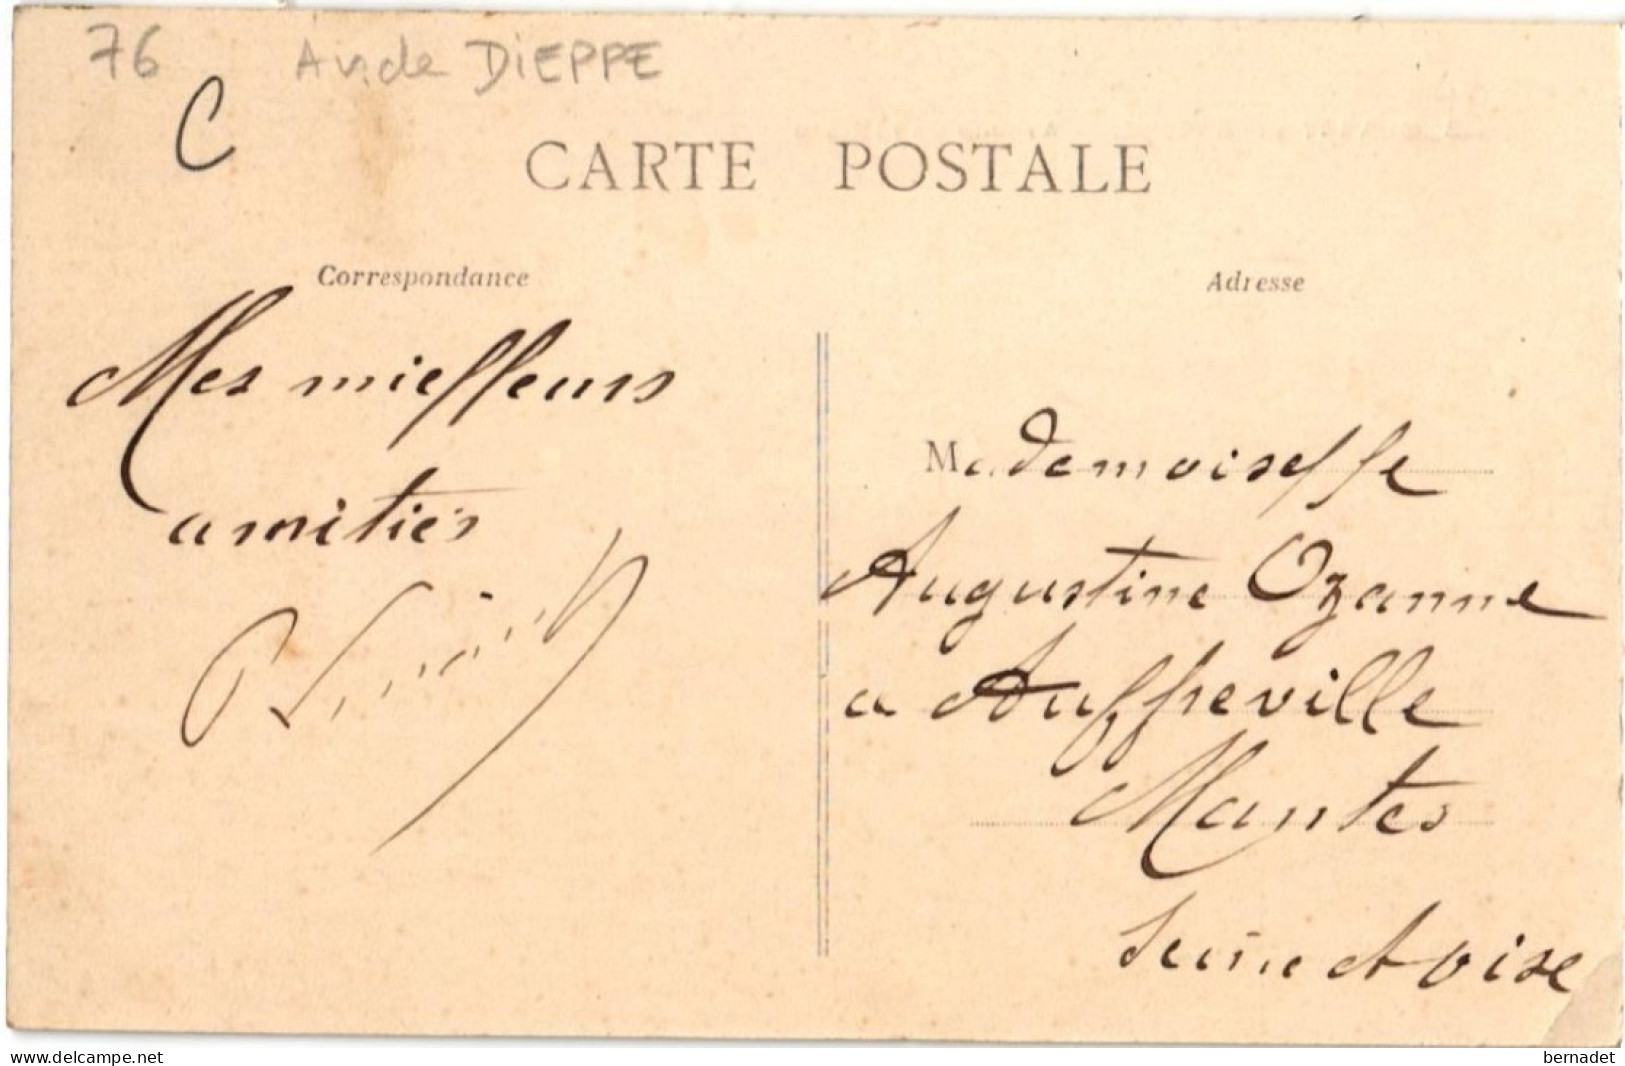 76 Av. de DIEPPE
C
CARTE POSTALE
Correspondance
Mes meilleurs
amitiés
Adresse
Mademoiselle
Augustine Ozanne
a Auffreville
Mantes
Seine et Oise
www.delcampe.net
bernadet